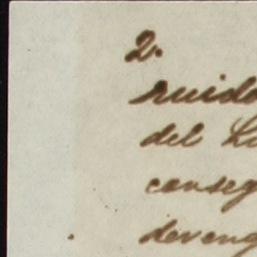 2.
ruido
del Li
conseg
deveng